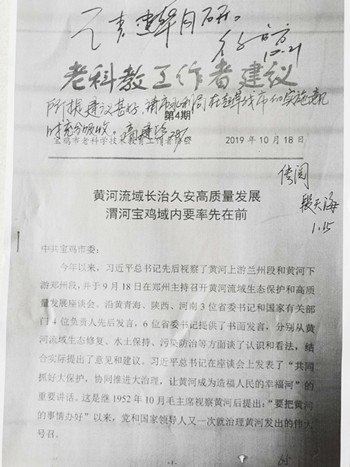 10.21
老科教工作者建议
第4期
2019年10月18日
传阅
1.15
黄河流域长治久安高质量发展
渭河宝鸡域内要率先在前
中共宝鸡市委：
今年以来，习近平总书记先后视察了黄河上游兰州段和黄河下
游郑州段，并于9月18日在郑州主持召开黄河流域生态保护和高
质量发展座谈会。沿黄青海、陕西、河南3位省委书记和国家有关部
门4位负责人先后发言，6位省委书记提供了书面发言，分别从黄
河流域生态修复、水土保持、污染防治等方面谈了认识和看法，结
合实际提出了意见和建议。习近平总书记在座谈会上发表了“共同
抓好大保护，协同推进大治理，让黄河成为造福人民的幸福河”的
重要讲话。这是继1952年10月毛主席视察黄河后提出：“要把黄河
的事情办好”以来，党和国家领导人又一次就治理黄河发出的伟大
号召。